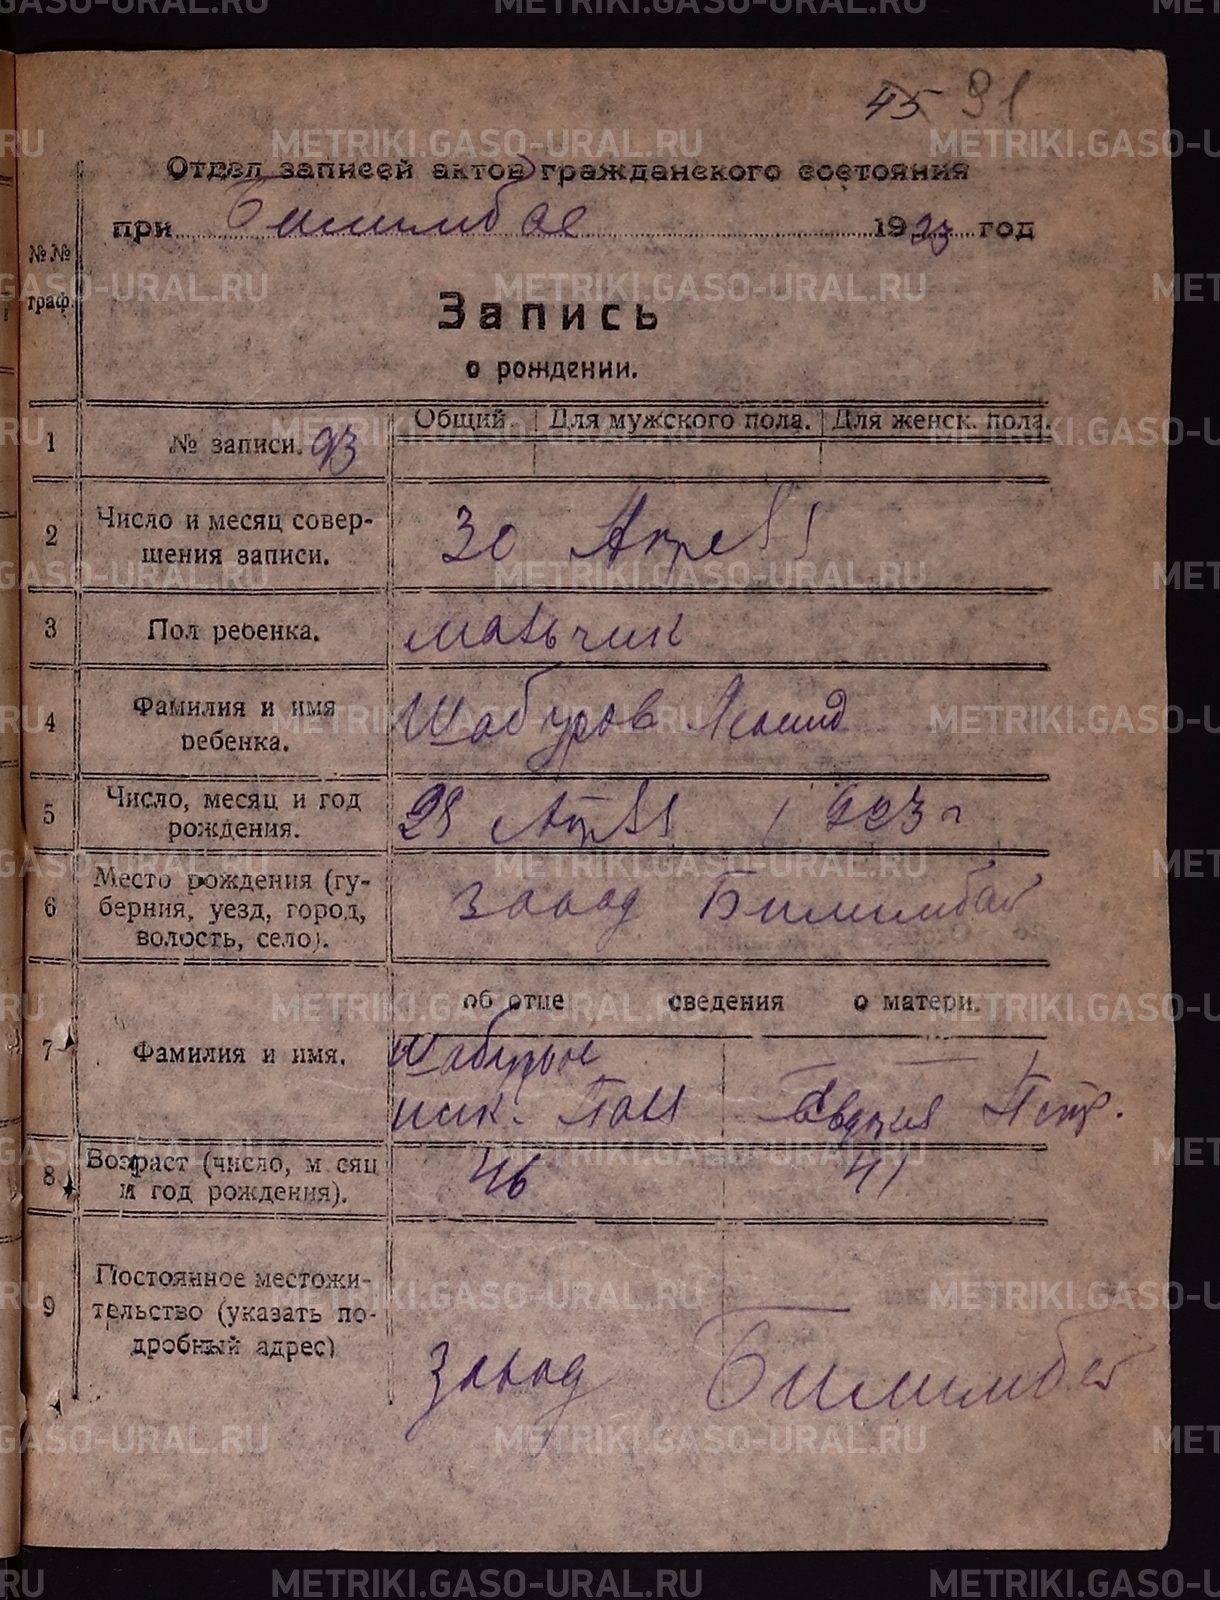 45 91
Отдел записей актов гражданского состояния
при Билимбае 1923 год
№№
граф.
Запись
о рождении.
Общий. Для мужского пола. Для женск. пола.
1 № записи. 93
2 Число и месяц совершения записи. 30 Апреля
3 Пол ребенка. мальчик
4 Фамилия и имя ребенка. Шабуров Леонид
5 Число, месяц и год рождения. Апреля 1923 г
6 Место рождения (губерния, уезд, город, волость, село). завод Билимбай
об отце сведения о матери.
7 Фамилия и имя. Шабуров Евдокия Петр.
8 Возраст (число, м сяц и год рождения). 46 41
9 Постоянное местожительство (указать подробный адрес) завод Билимбай
METRIKI.GASO-URAL.RU